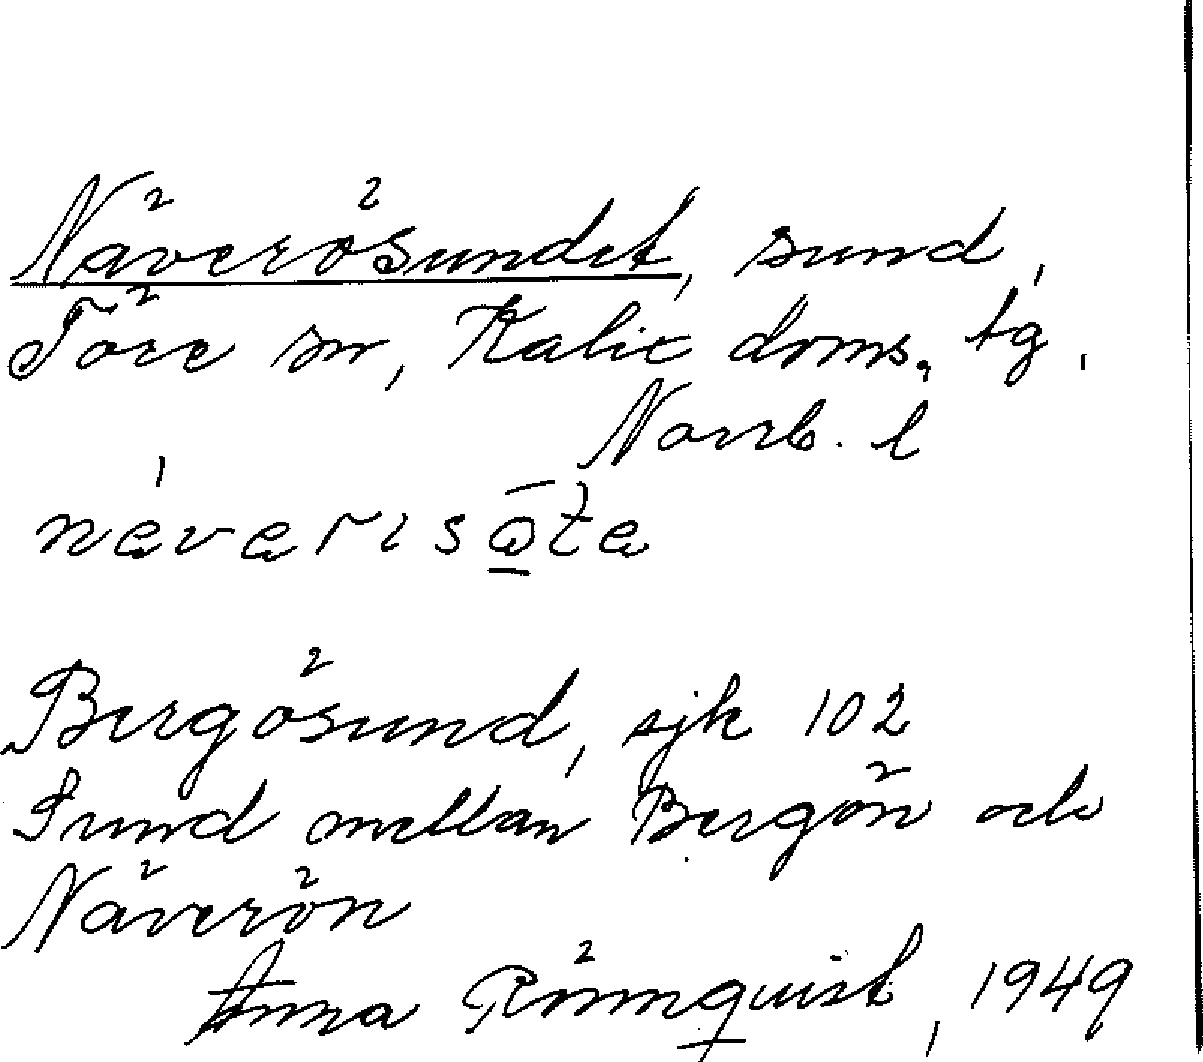 Näverösundet, sund,
Töre sn, Kalix doms. tg.
Norrb. l
Bergösund, sjk 102
Sund mellan Bergön och
Näverön
Anna Rönnquist, 1949